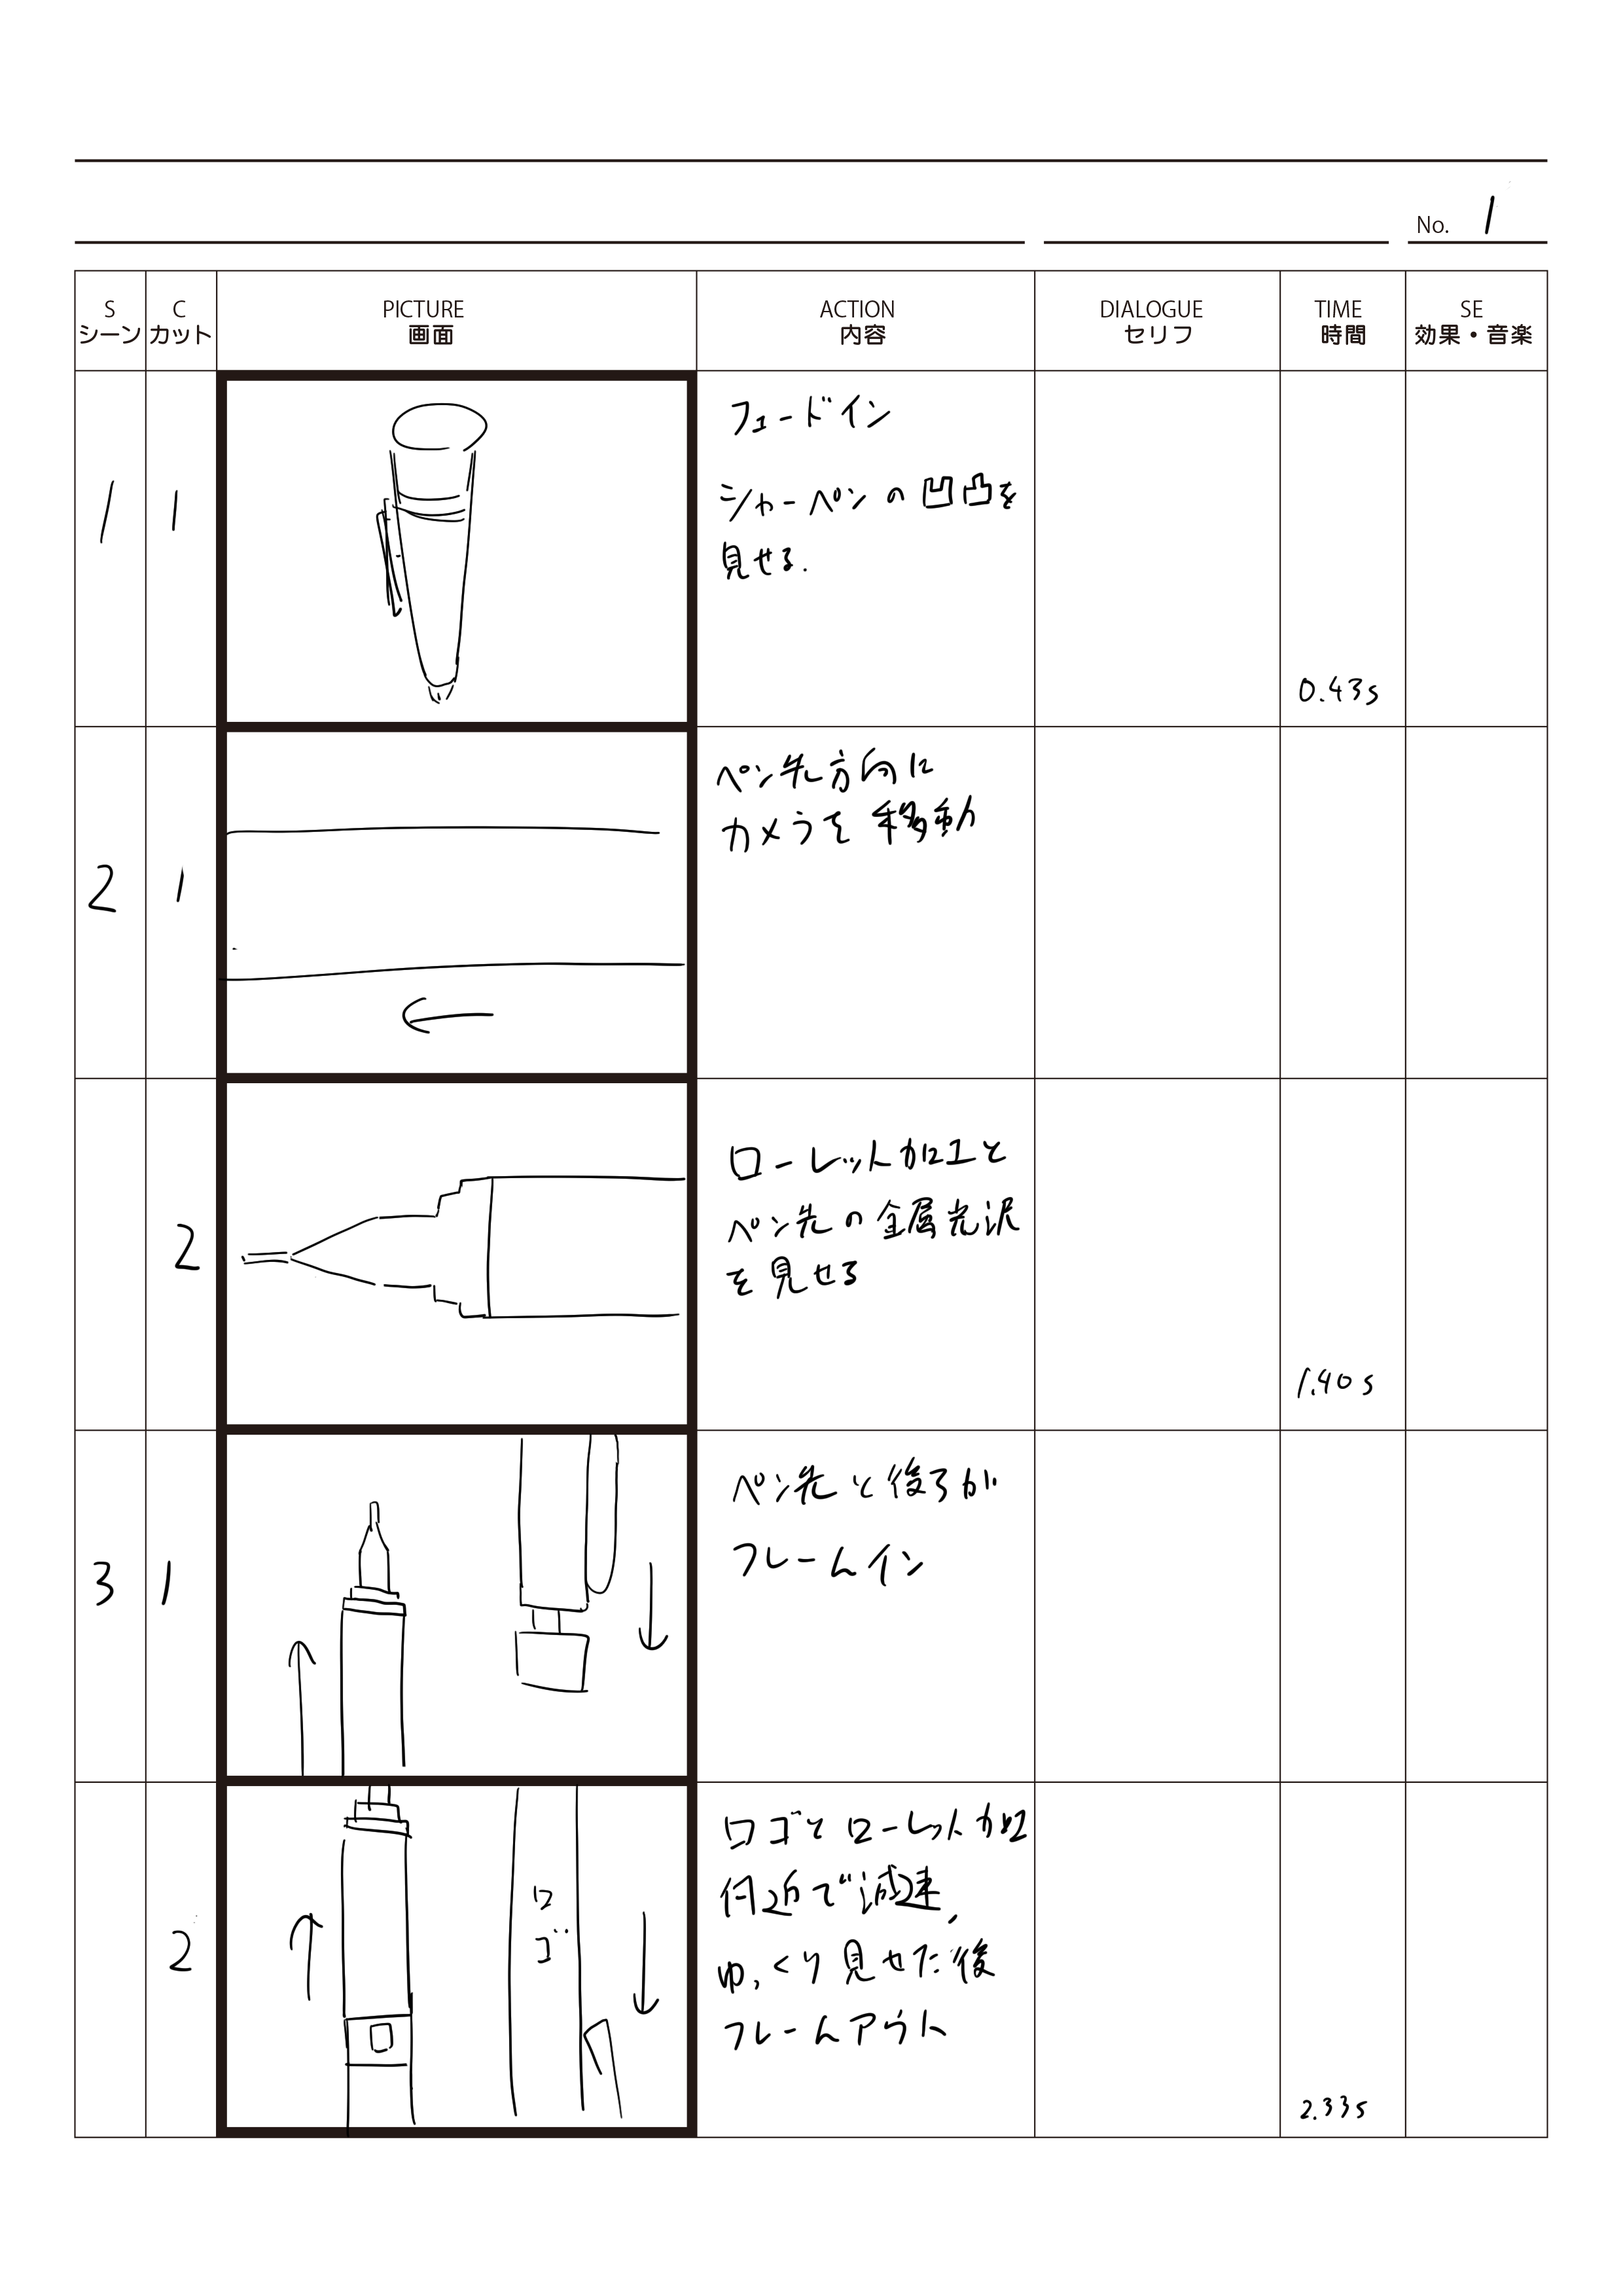 No. 1
S C PICTURE ACTION DIALOGUE TIME SE
シーン カット 画面 内容 セリフ 時間 効果・音楽
1 1
フェードイン
シャーペンの凹凸を
見せる.
0.43s
2 1
ペン先方向に
カメラを移動
2
ローレット加工と
ペン先の金属光沢
を見せる
1.40s
3 1
ペン先と後ろが
フレームイン
2
ロ
ゴ
ロゴとローレット加工
付近で減速,
ゆっくり見せた後
フレームアウト
2.33s